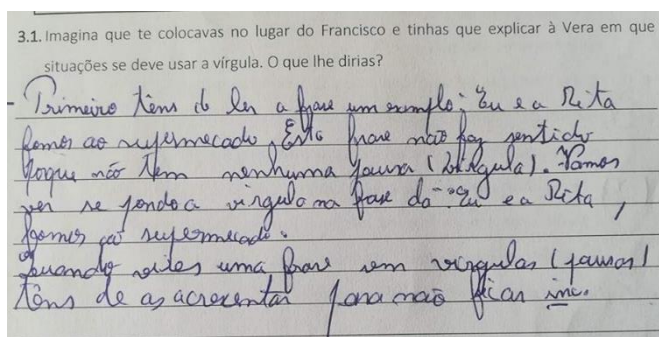 3.1. Imagina que te colocavas no lugar do Francisco e tinhas que explicar à Vera em que
situações se deve usar a vírgula. O que lhe dirias?
- Primeiro tens de ler a frase um exemplo: Eu e a Rita
fomos ao supermecado. Esta frase não faz sentido
porque não tem nenhuma pausa (vírgula). Vamos
ver se pondo a virgula na frase dá-: Eu e a Rita,
fomos ao supermecado.
Quando vires uma frase sem virgulas (pausas)
têns de as acrexentar para não ficar inc.